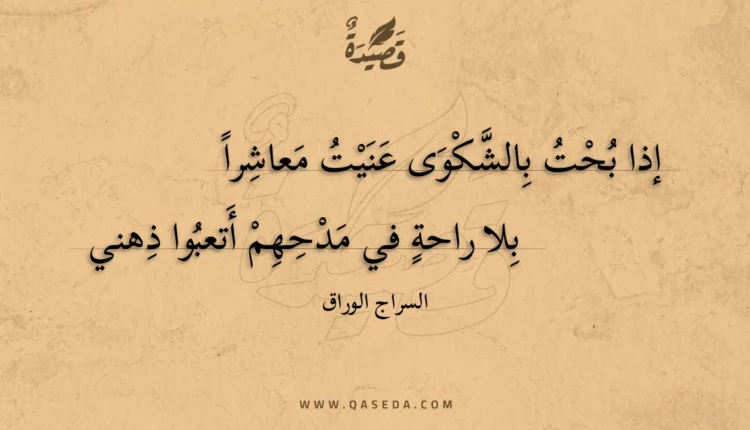 قَصِيْدَةٌ
إذا بُحْتُ بِالشَّكْوَى عَنَيْتُ مَعاشِراً
بِلا راحةٍ في مَدْحِهِمْ أَتعبُوا ذِهني
السراج الوراق
WWW.QASEDA.COM